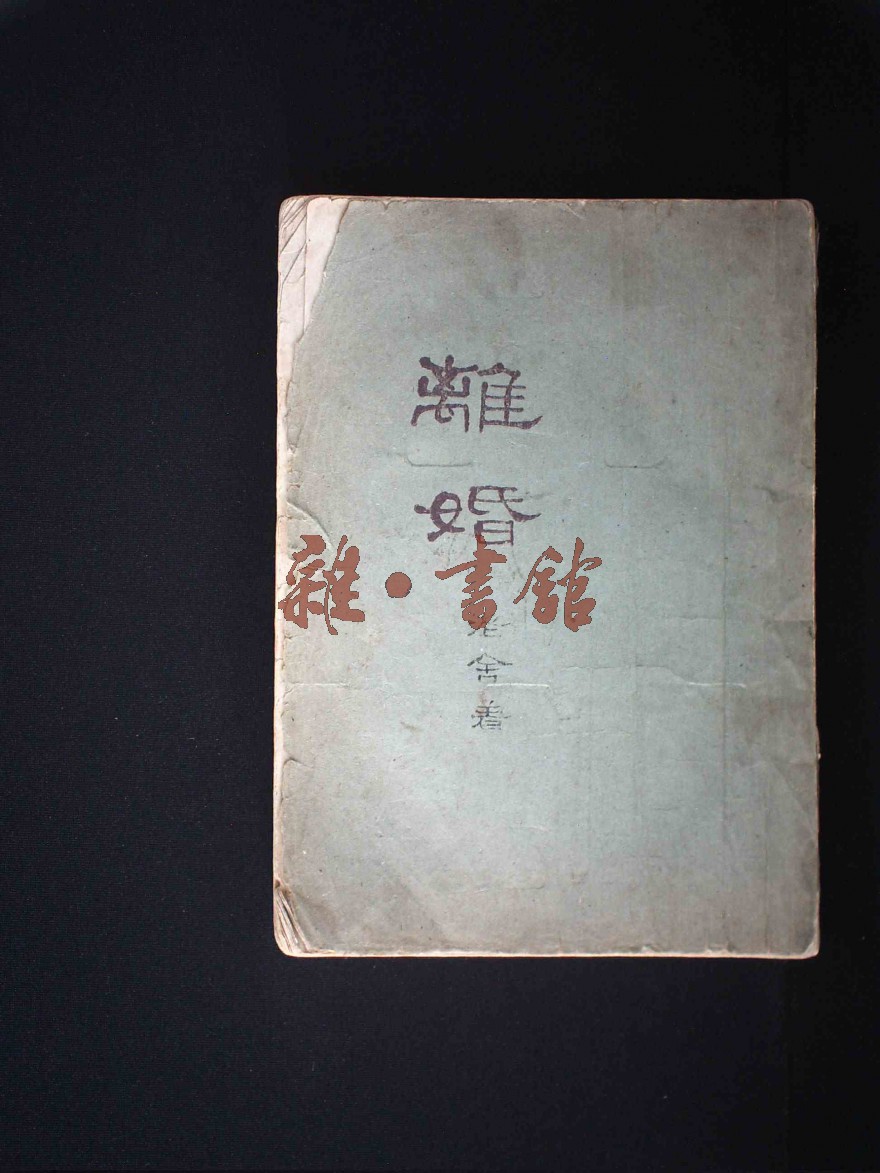 離
婚
雜·書館
老
舍
著